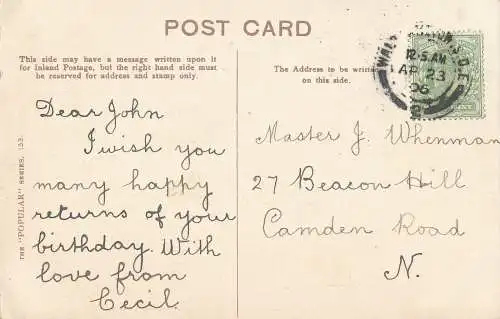 POST CARD
This side may have a message written upon it
for Inland Postage, but the right hand side must
be reserved for address and stamp only.
The Address to be written
on this side.
THE "POPULAR" SERIES. 153.
Dear John
I wish you
many happy
returns of your
birthday. With
love from
Cecil.
12.5.AM
AP 23
06
Master J. Whenman
27 Beacon Hill
Camden Road
N.